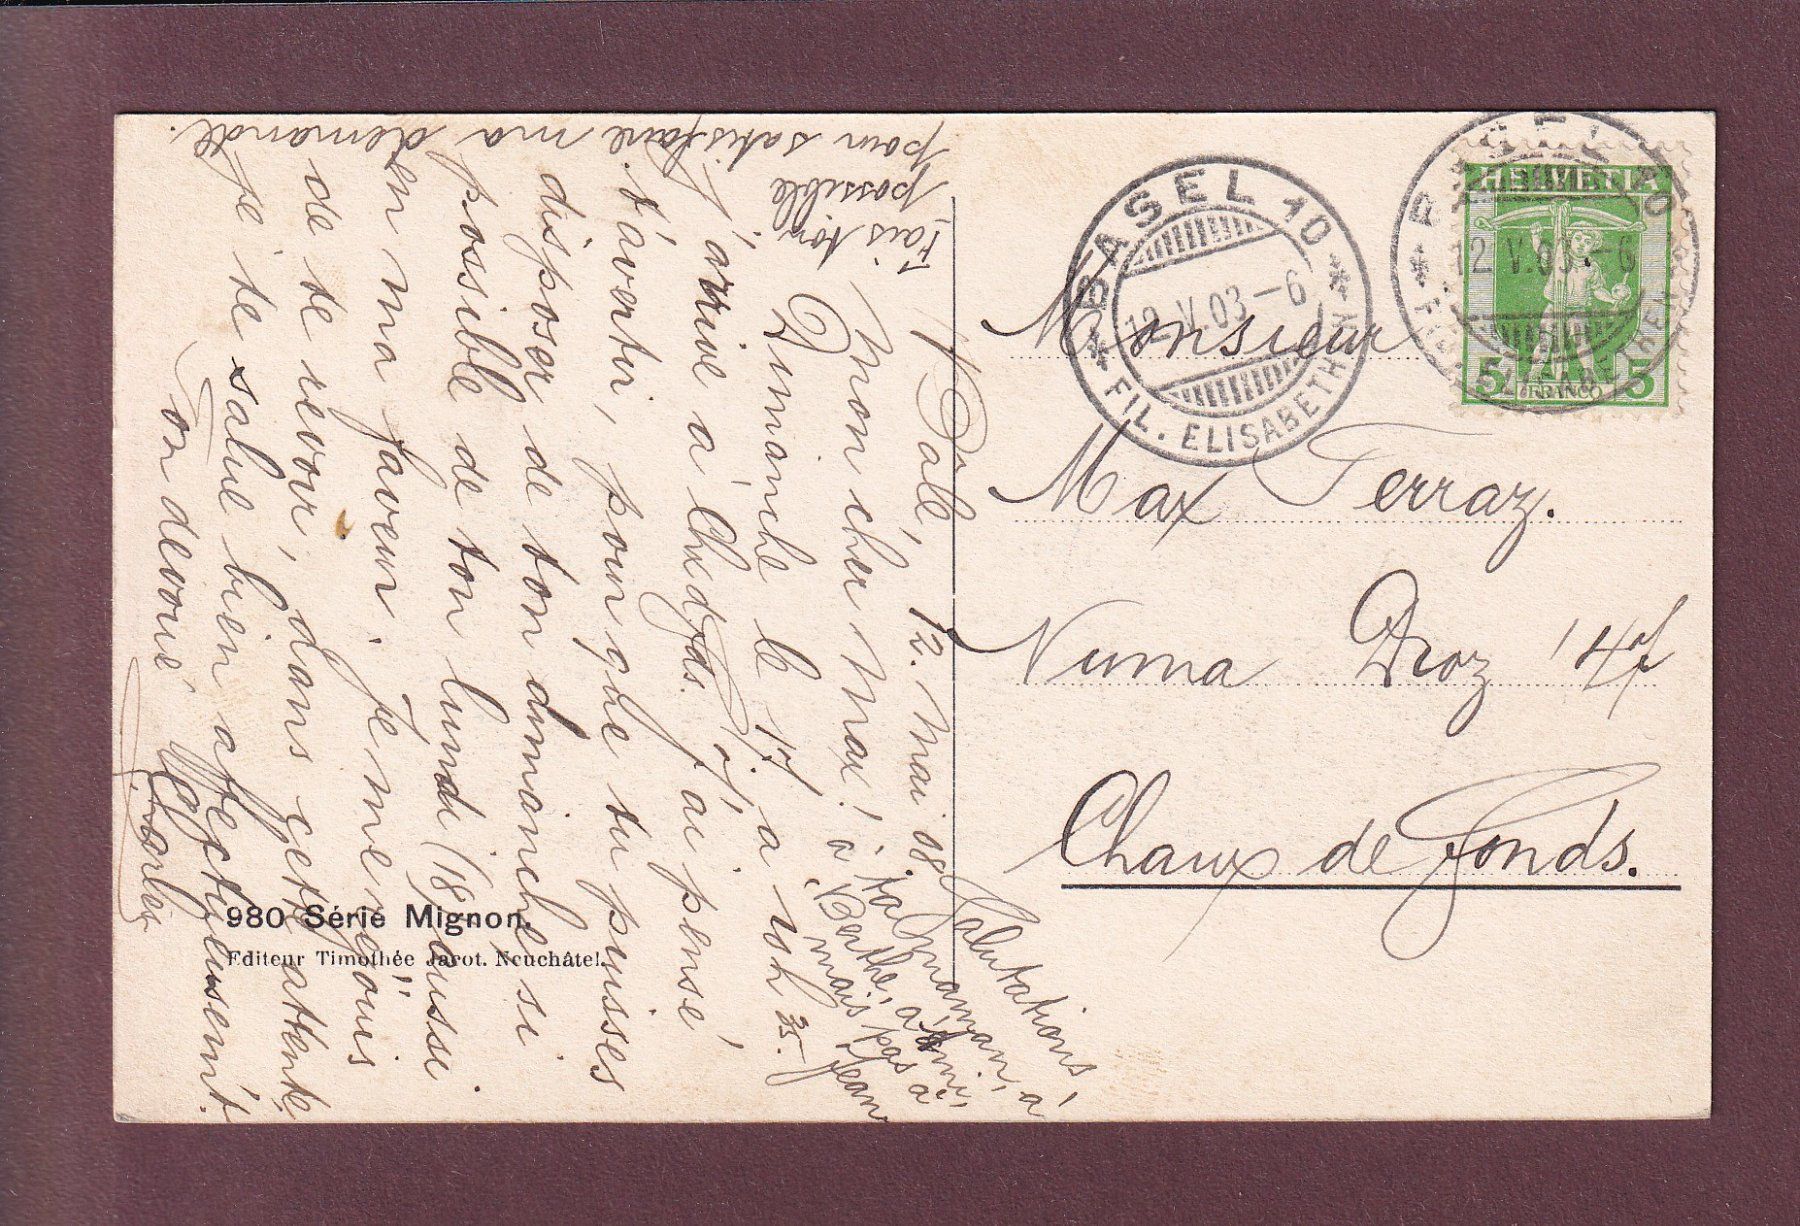 Bâle, 12. Mai 08
Mon cher Max!
Dimanche le 17. à
j'arrive à Chxdfds. J'ai pensé
t'avertir, pour que tu puisses
disposer de ton dimanche si
possible de ton lundi (18) aussi
en ma faveur. Je me réjouis
de te revoir, dans cette attente
je te salue bien affectueusement
Ton dévoué
Charles
Fais ton
possible
pour satisfaire ma demande.
Salutations à
ta maman, à
à Berthe, à
mais pas à
Jean
980 Série Mignon.
Editeur Timothée Jacot. Neuchâtel.
BASEL 10
12.V.08-6
FIL. ELISABETH
BASEL 10
12.V.08-6
FIL. ELISABETHEN
HELVETIA
5 5
FRANCO
Monsieur
Max Terraz.
Numa Droz 147
Chaux de Fonds.